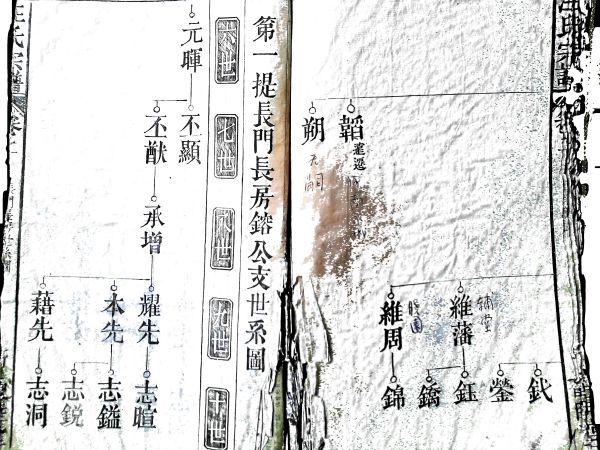 韜
遷遜
朔
維藩
維周
釴
鎣
鈺
鐈
錦
第一提長門長房鎔公支世系圖
六世
七世
八世
九世
十世
元暉
丕顯
丕猷
承增
耀先
本先
藉先
志暄
志鎰
志銳
志洞